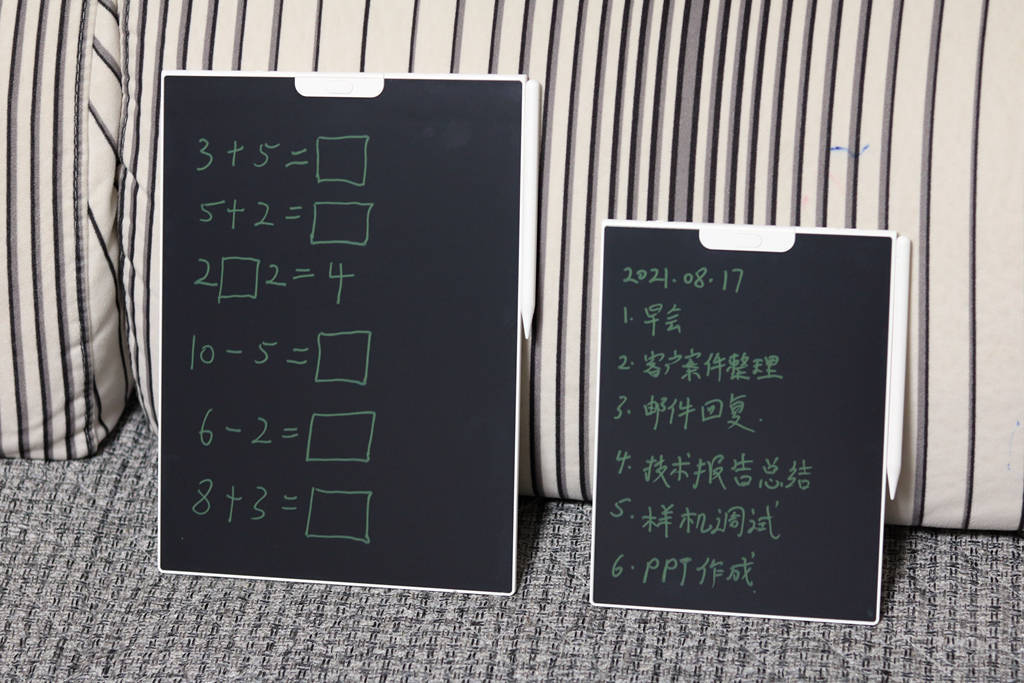 3+5=□
5+2=□
2□2=4
10-5=□
6-2=□
8+3=□
2021.08.17
1.早会
2.客户案件整理
3.邮件回复.
4.技术报告总结
5.样机调试
6.PPT作成